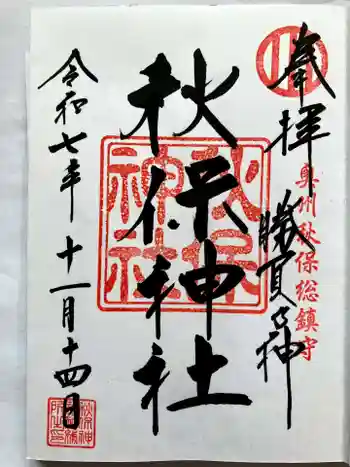 奉拝
奥州秋保総鎮守
勝負の神
秋保神社
秋保神社
令和七年十一月十四日